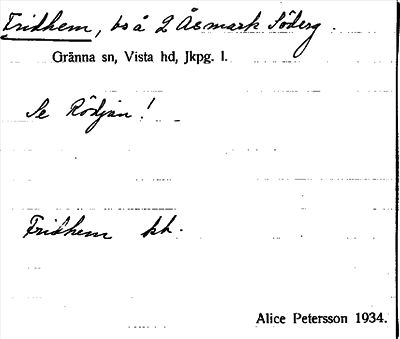 Fridhem, bs å 2 Åsmark Söderg.
Gränna sn, Vista hd, Jkpg. l.
Se Rödjan!
Fridhem kk.
Alice Petersson 1934.